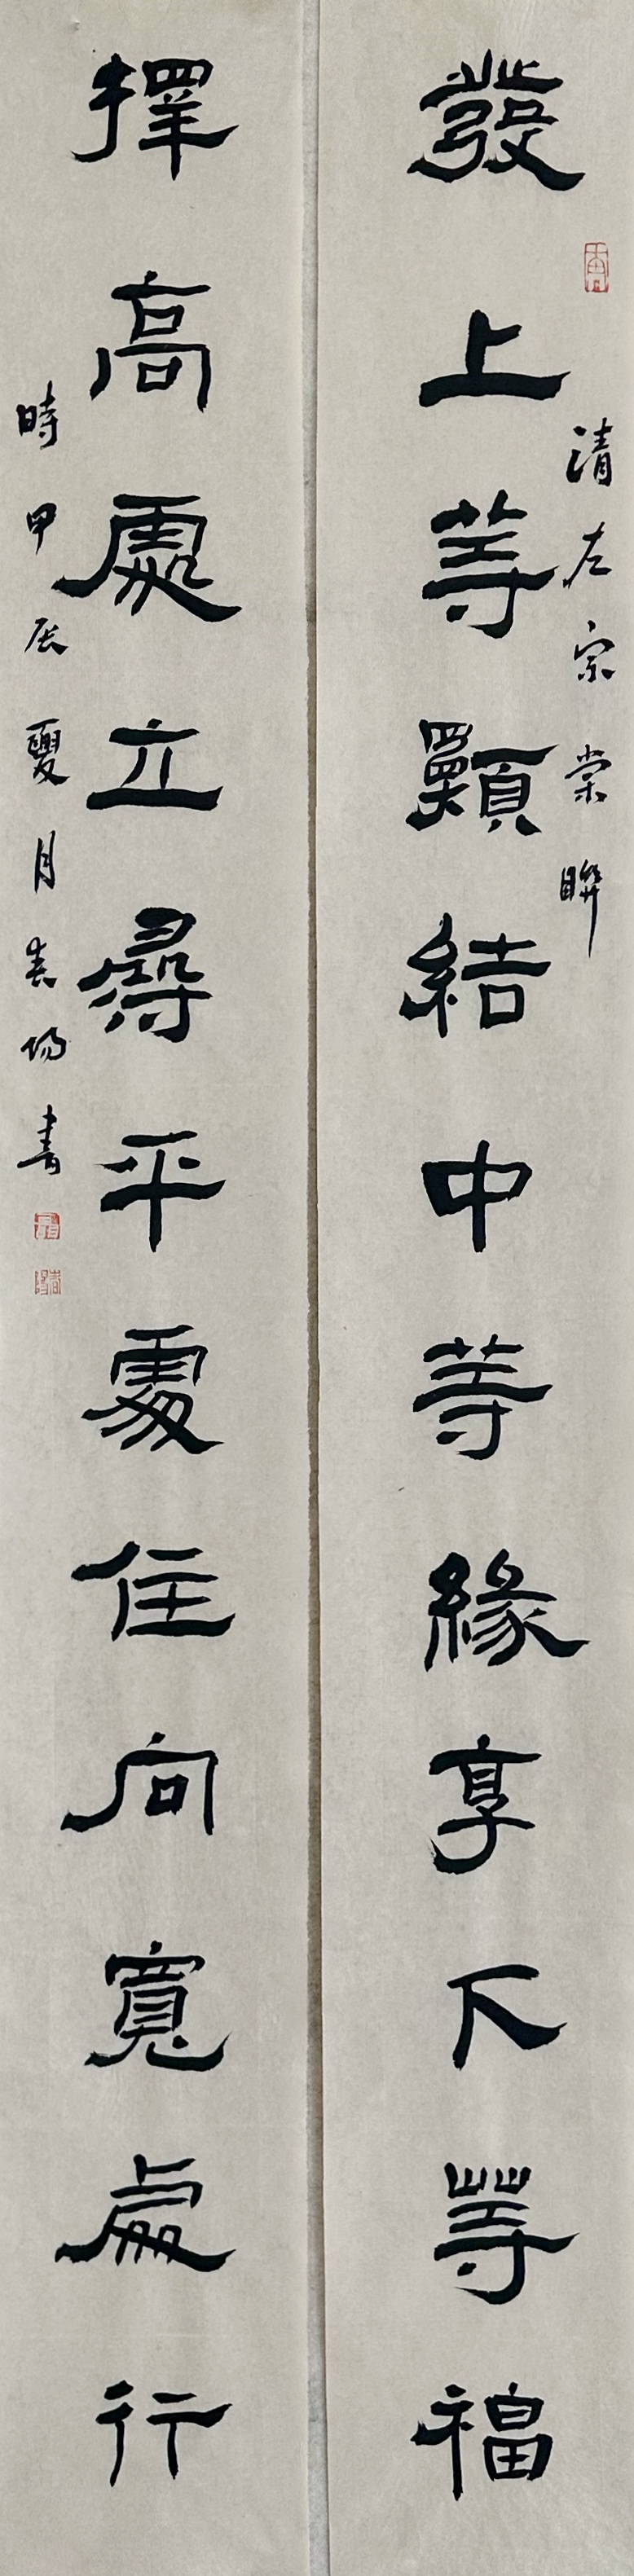 發上等願結中等緣享下等福
清左宗棠聯
擇高處立尋平處住向寬處行
時甲辰夏月春陽書